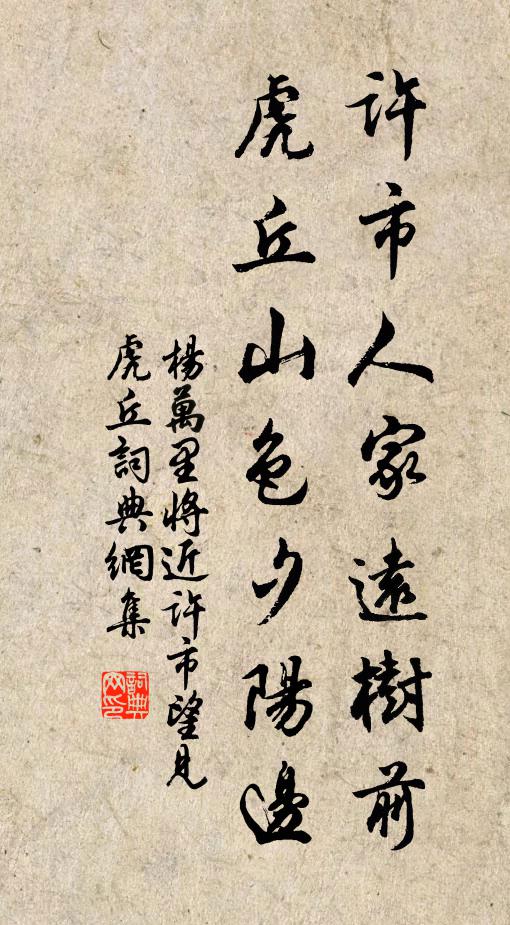 許市人家遠樹前
虎丘山色夕陽邊
楊萬里將近許市望見
虎丘詞典網集
詞典
网印